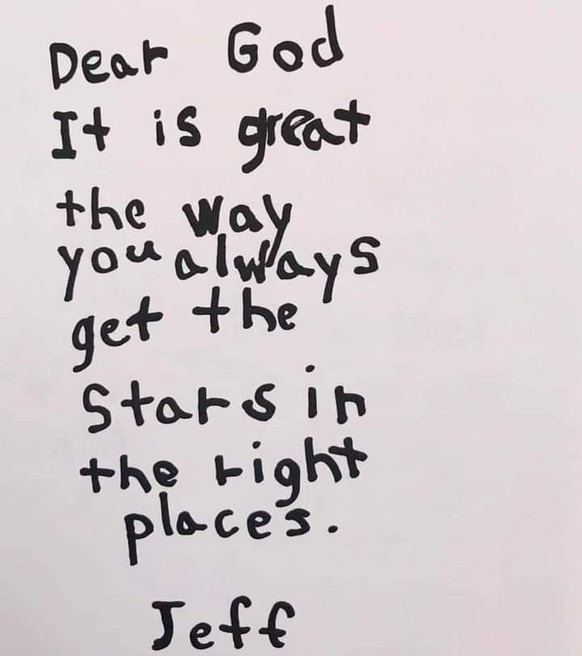 Dear God
It is great
the way
you always
get the
Stars in
the right
places.
Jeff